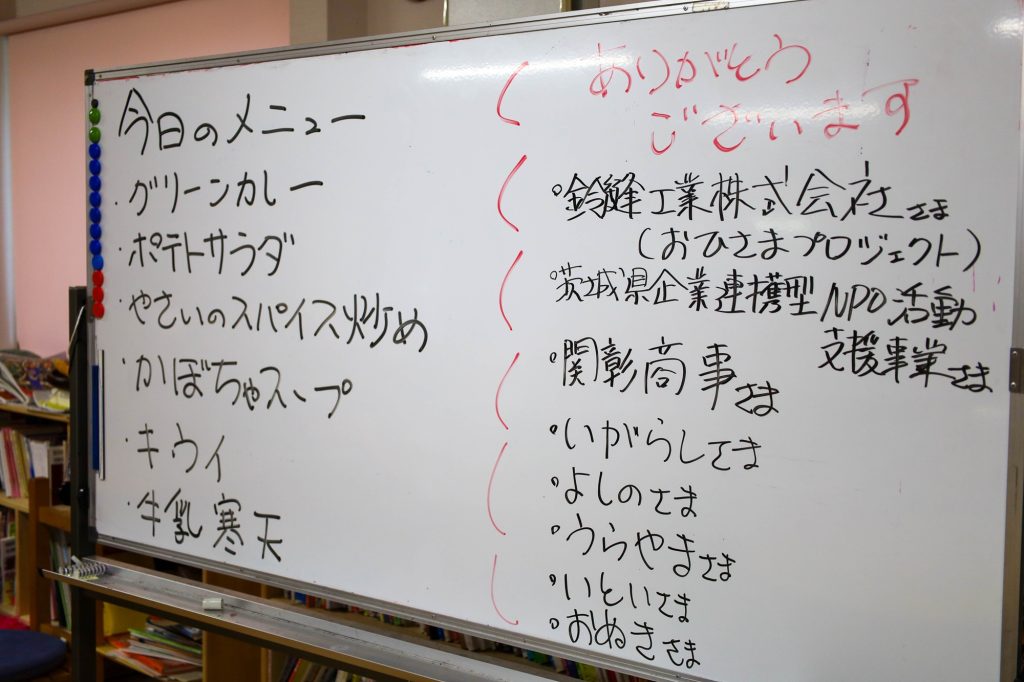 今日のメニュー
・グリーンカレー
・ポテトサラダ
・やさいのスパイス炒め
・かぼちゃスープ
・キウイ
・牛乳寒天
ありがそう
ございます
・鈴縫工業株式会社さま
(おひさまプロジェクト)
・茨城県企業連携型NPO活動
支援事業さま
・関彰商事さま
・いがらしさま
・よしのさま
・うらやまさま
・いといさま
・おぬきさま